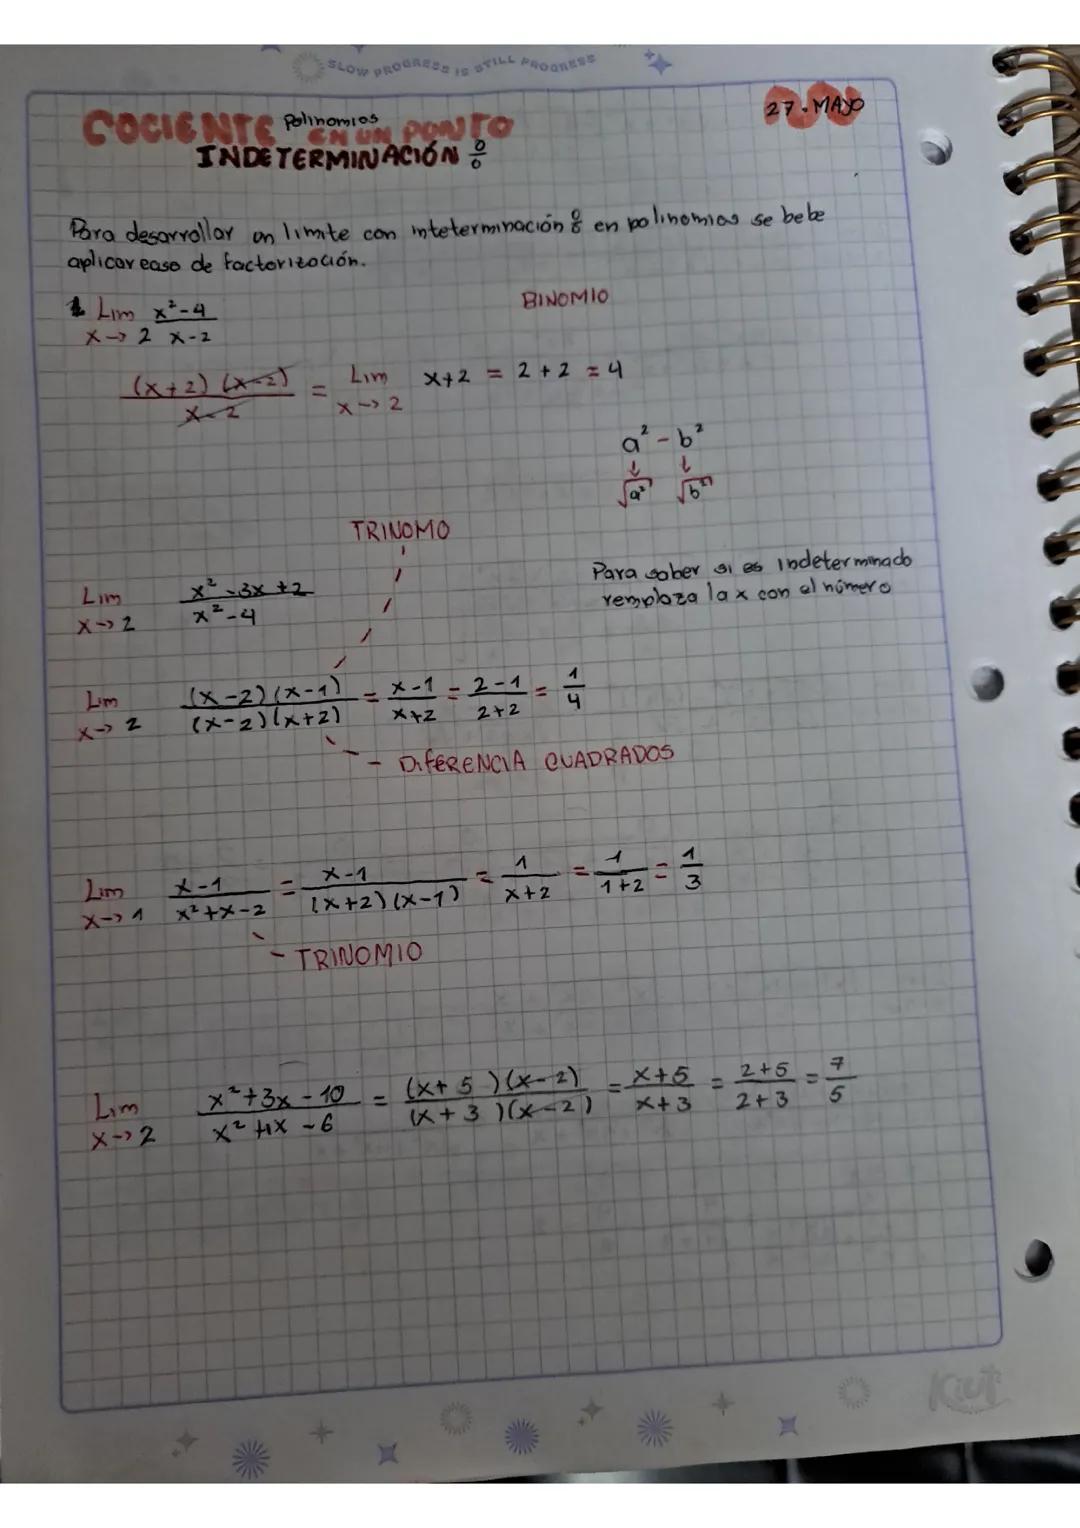 SLOW PROGRESS IS STILL PROGRESS
27. MAYO
Polinomios
COCIENTE EN UN PONTO
INDETERMINACIÓN 0/0
Para desarrollar un limite con inteterminación 0/0 en polinomios se bebe
aplicar caso de factorización.
BINOMIO
Lim x²-4 / x-2
x→2
(x+2)(x-2) / x-2 = Lim x→2 x+2 = 2+2 = 4
a² - b²
↓ ↓
√a² √b²ⁿ
TRINOMO
Para saber si es indeterminado
remplaza la x con el número
Lim x→2 x²-3x+2 / x²-4
Lim x→2 (x-2)(x-1) / (x-2)(x+2) = x-1 / x+2 = 2-1 / 2+2 = 1/4
- DIFERENCIA CUADRADOS
Lim x→1 x-1 / x²+x-2 = x-1 / (x+2)(x-1) = 1 / x+2 = 1 / 1+2 = 1/3
- TRINOMIO
Lim x→2 x²+3x-10 / x²+1x-6 = (x+5)(x-2) / (x+3)(x-2) = x+5 / x+3 = 2+5 / 2+3 = 7/5
Kiut